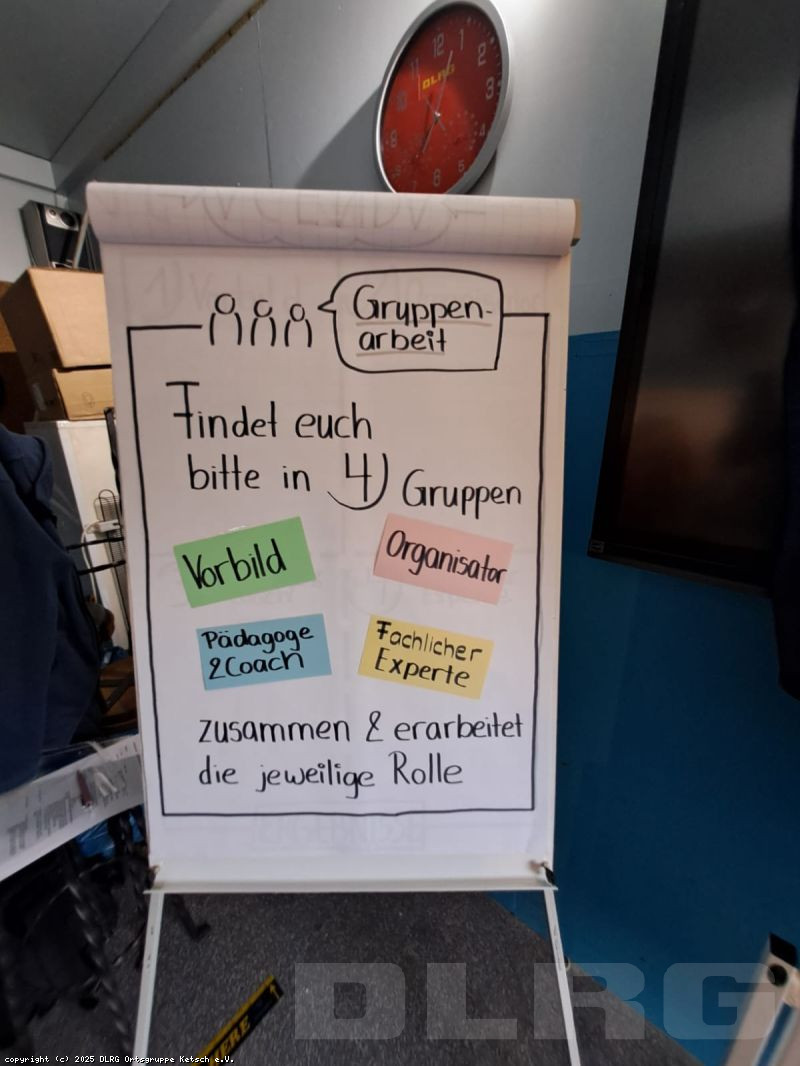 DLRG
12
1
2
3
4
Gruppen-
arbeit
Findet euch
bitte in 4 Gruppen
Vorbild
Organisator
Pädagoge
& Coach
Fachlicher
Experte
zusammen & erarbeitet
die jeweilige Rolle
DLRG
copyright (c) 2025 DLRG Ortsgruppe Ketsch e.V.